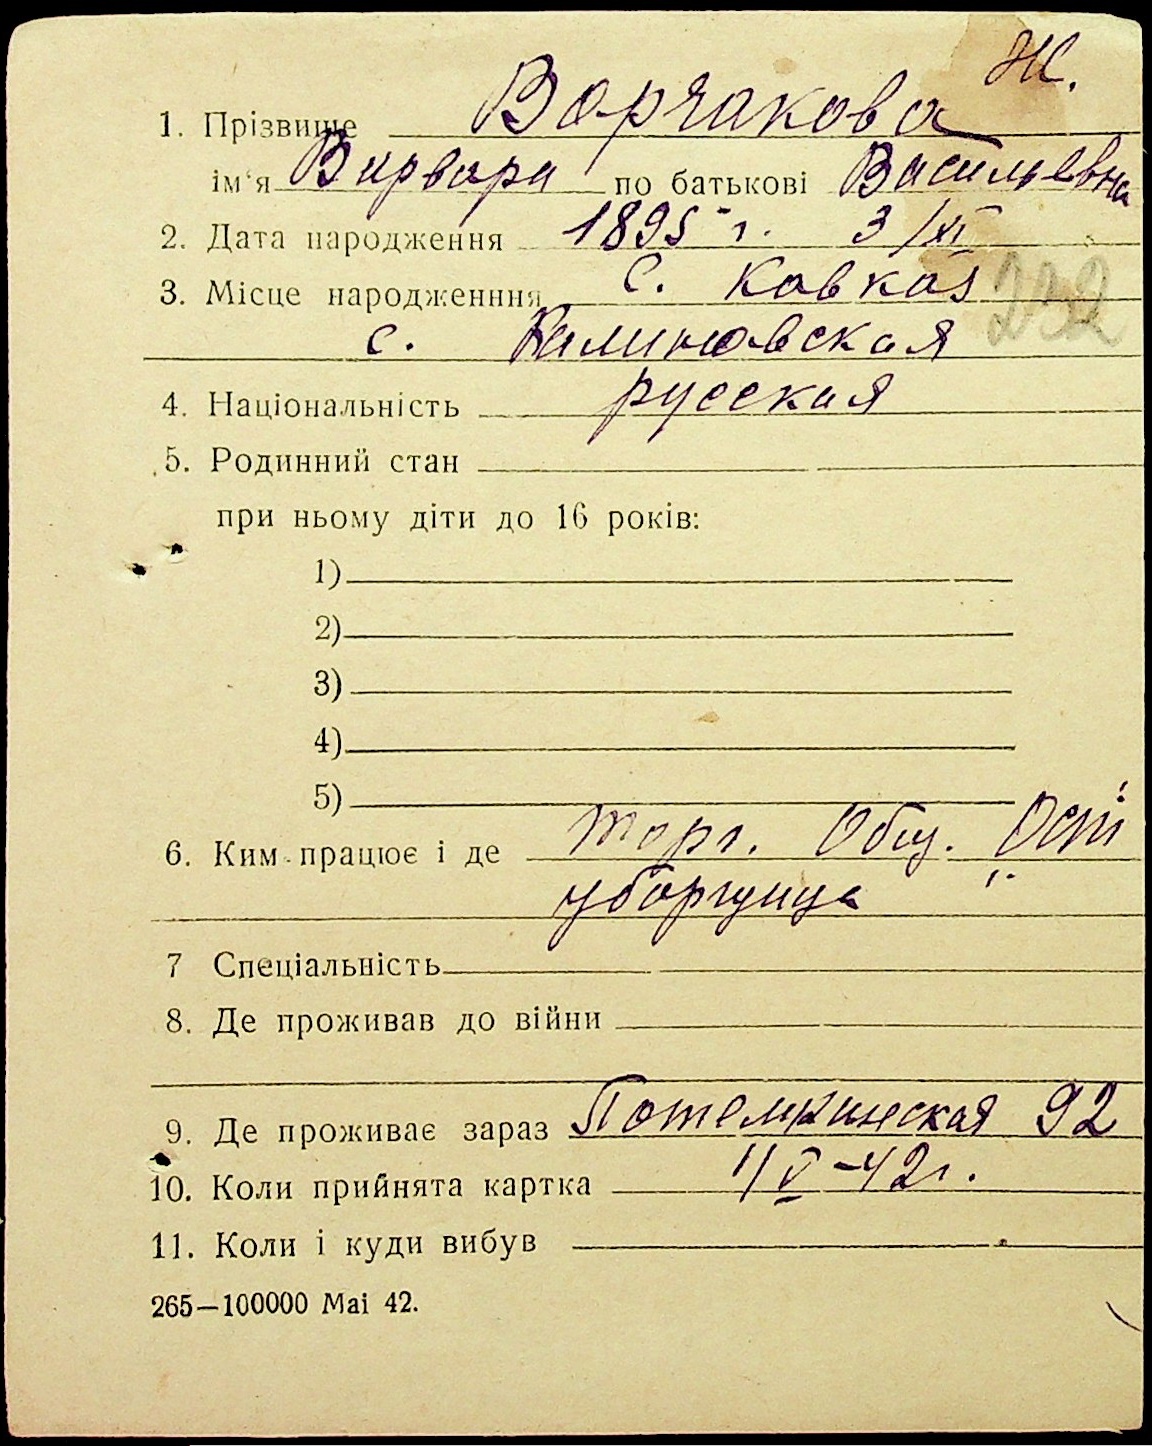 Ж.
1. Прізвище Ворчакова
ім'я Варвара по батькові Васильевна
2. Дата народження 1895 г. 3/XI
3. Місце народженння С. Кавказ
232
с. Калиновская
4. Національність русская
5. Родинний стан
при ньому діти до 16 років:
1)
2)
3)
4)
5)
6. Ким працює і де Торг. Общ. "Ост"
уборщица
7 Спеціальність
8. Де проживав до війни
9. Де проживає зараз Потемкинская 92
10. Коли прийнята картка 1/V-42г.
11. Коли і куди вибув
265—100000 Mai 42.